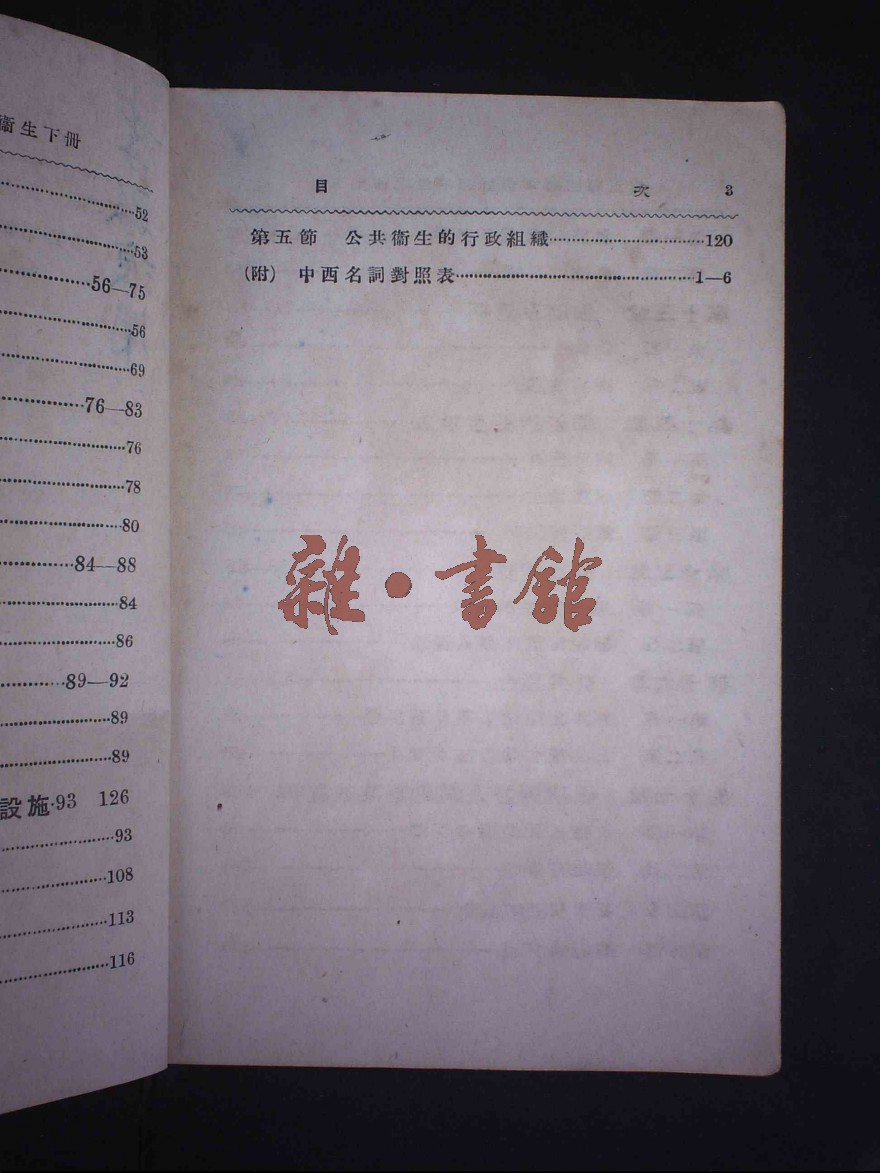 衞生下册
52
53
56—75
56
69
76—83
76
78
80
84—88
84
86
89—92
89
89
設施·93 126
93
108
113
116
目 次 3
第五節 公共衞生的行政組織 120
(附) 中西名詞對照表 1—6
雜·書館